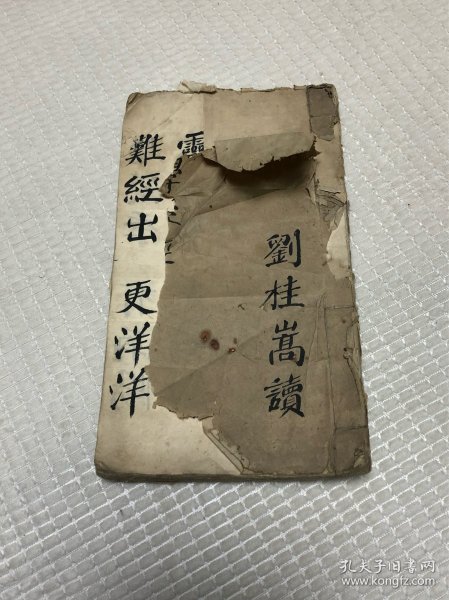 劉桂嵩讀
靈
難經出 更洋洋
孔夫子旧书网
www.kongfz.com